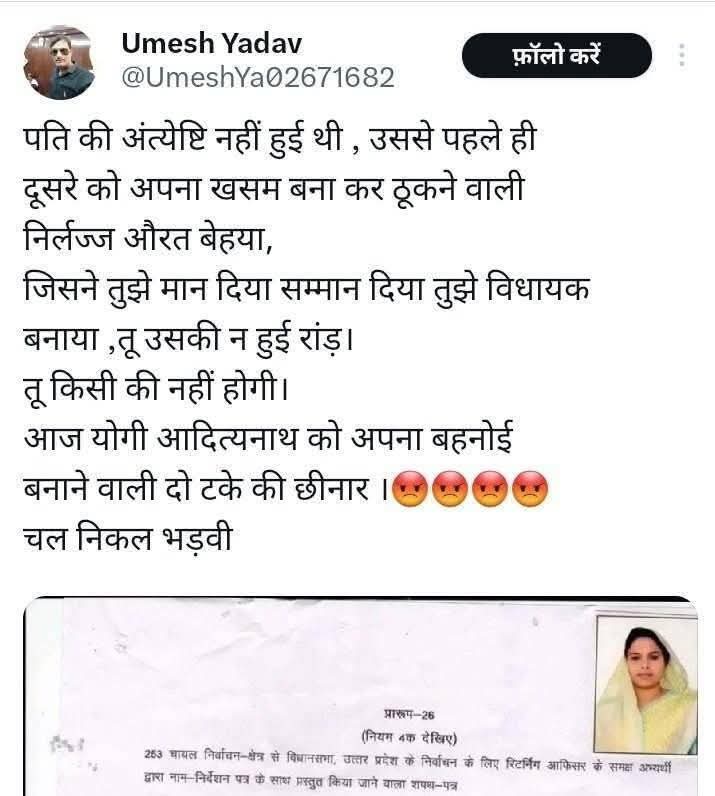 Umesh Yadav
@UmeshYa02671682
फ़ॉलो करें
पति की अंत्येष्टि नहीं हुई थी , उससे पहले ही
दूसरे को अपना खसम बना कर ठूकने वाली
निर्लज्ज औरत बेहया,
जिसने तुझे मान दिया सम्मान दिया तुझे विधायक
बनाया ,तू उसकी न हुई रांड़।
तू किसी की नहीं होगी।
आज योगी आदित्यनाथ को अपना बहनोई
बनाने वाली दो टके की छीनार ।😡😡😡😡
चल निकल भड़वी
प्रारूप-26
(नियम 4क देखिए)
253 चायल निर्वाचन-क्षेत्र से विधानसभा, उत्तर प्रदेश के निर्वाचन के लिए रिटर्निंग आफिसर के समक्ष अभ्यर्थी
द्वारा नाम-निर्देशन पत्र के साथ प्रस्तुत किया जाने वाला शपथ-पत्र